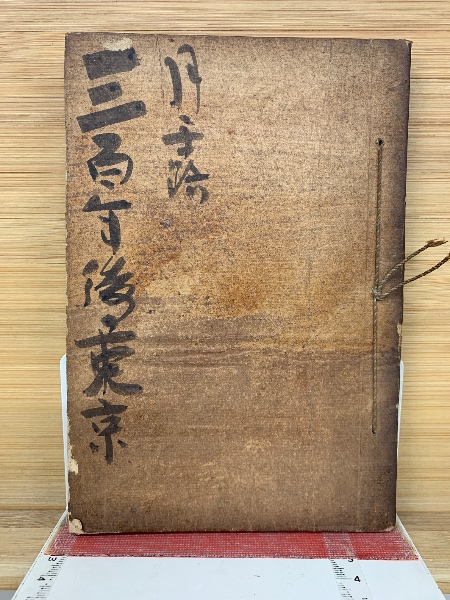 月
三百年後東京
3
4
3
4